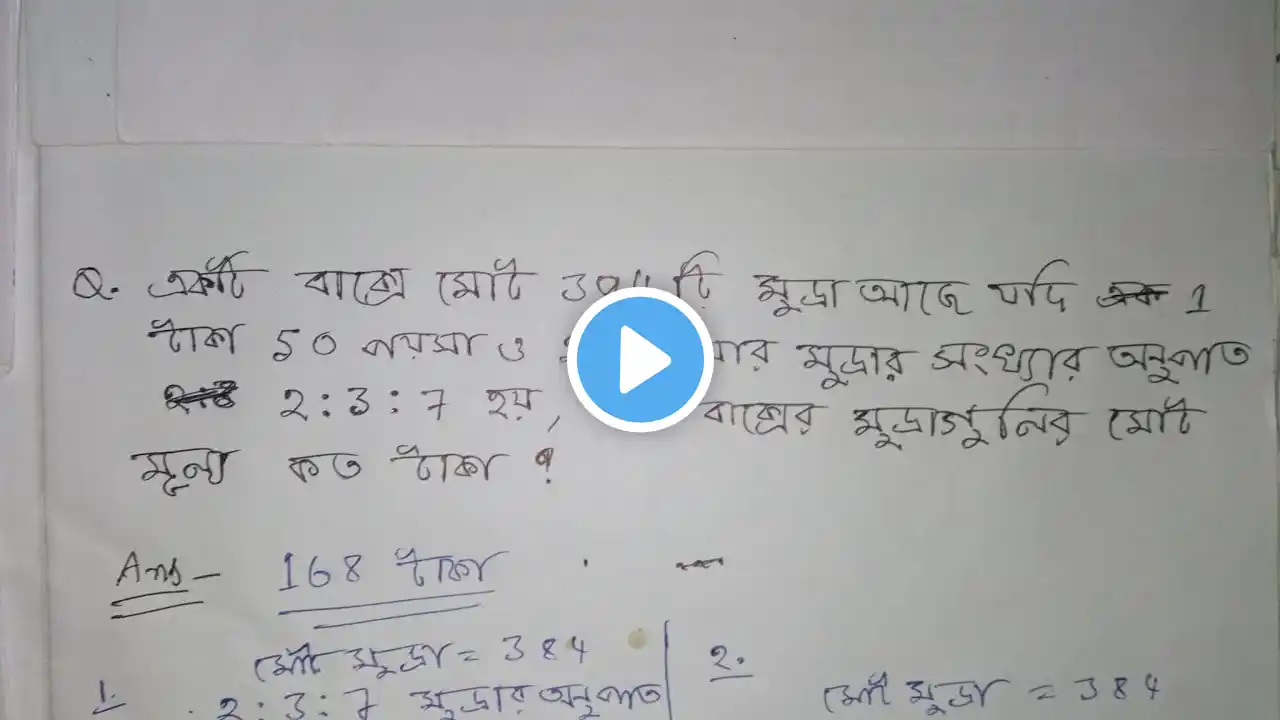 Q. একটি বাক্সে মোট টি মুদ্রা আছে যদি 1
টাকা 50 পয়সা ও মুদ্রার সংখ্যার অনুপাত
2:3:7 হয়, বাক্সের মুদ্রাগুলির মোট
মূল্য কত টাকা ?
Ans - 168 টাকা
মোট মুদ্রা = 384
1. 2:3:7 মুদ্রার অনুপাত
2.
মোট মুদ্রা = 384